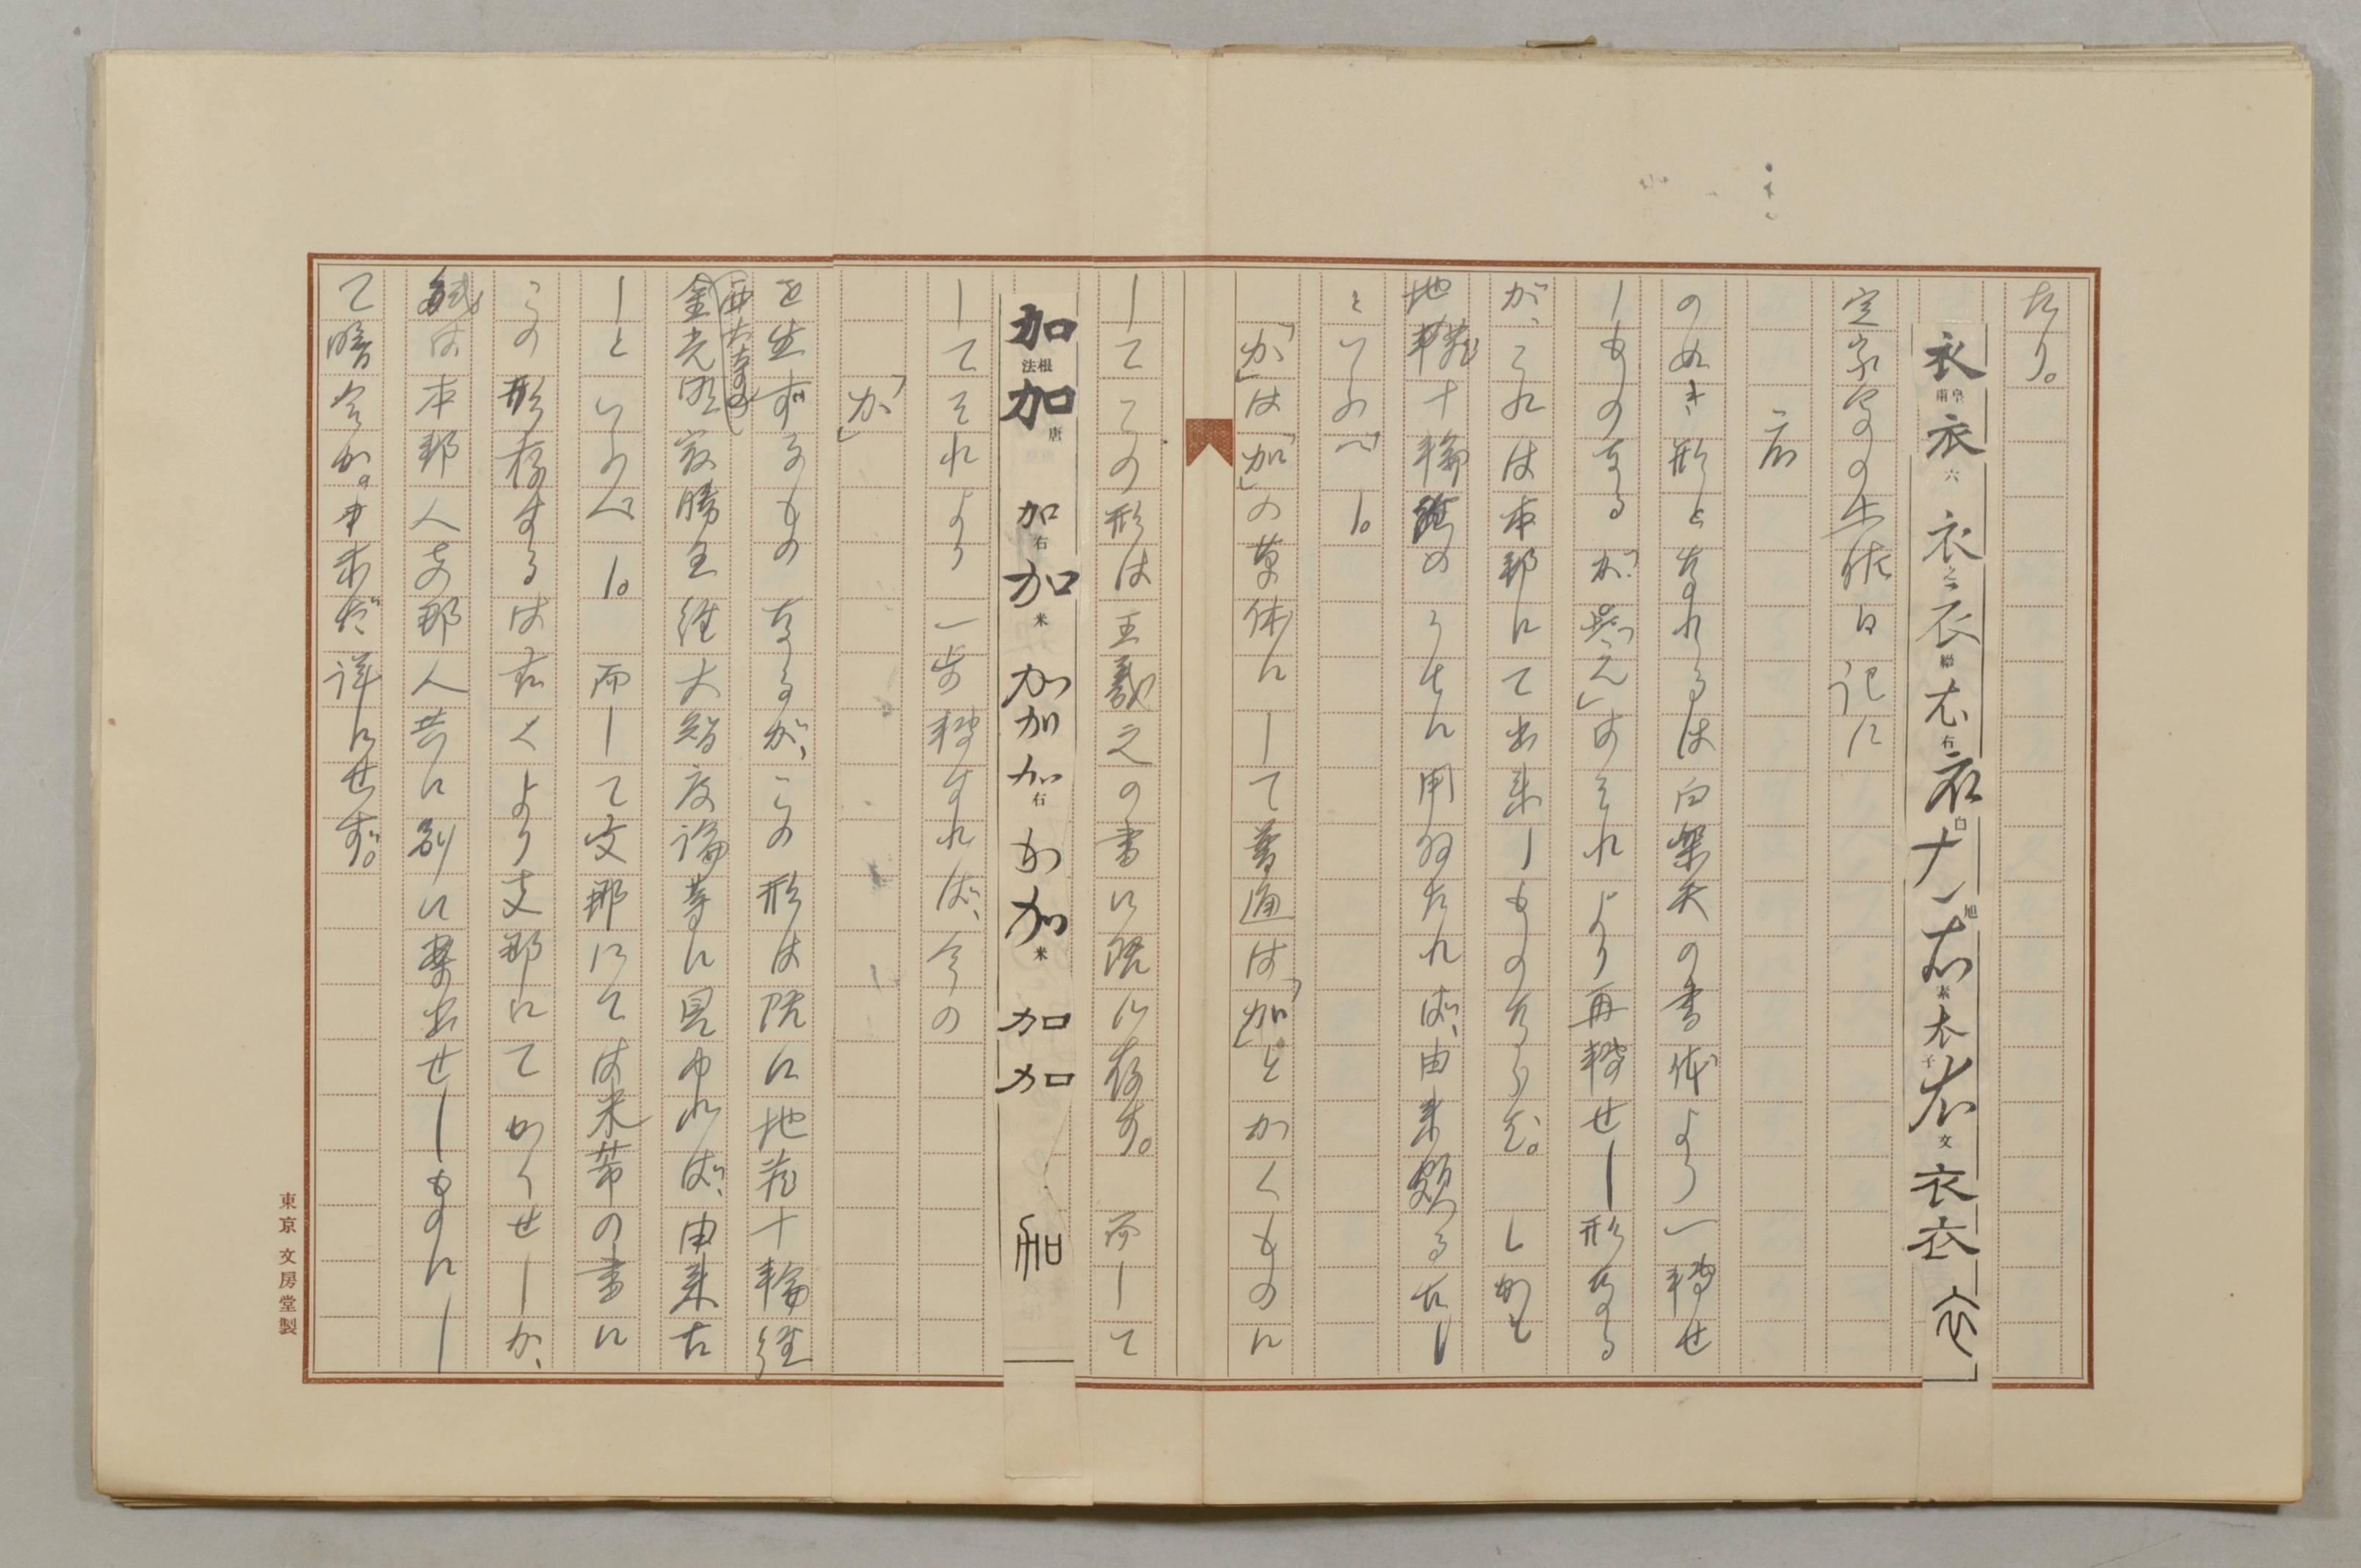 たり。
衣 衣 衣 衣 衣 衣 衣 衣 衣 衣 衣 衣 衣
定家写の土佐日記に
のぬき形となれるは白楽天の書体より一転せ
しものなるが、
「え」はそれより再転せし形なる
が、これは本邦にて出来しものならむ。しかも
地蔵十輪経のうちに用ゐたれば、由来頗る古し
といふべし。
「か」は「加」の草体にして普通は「加」とかくものに
してこの形は王羲之の書に既に存す。而して
加 加 加 加 加 加 加 加 加 加 加 加
してそれより一歩転ずれば、今の
「か」
を生ずるものなるが、この形は既に地蔵十輪経
西大寺の
金光明最勝王経大智度論等に見ゆれば、由来古
しといふべし。而して支那にては米芾の書に
この形存するは古くより支那にてかくせしか、
或は本邦人支那人共に別に案出せしものにし
て暗合か。未だ詳にせず。
東京 文房堂製